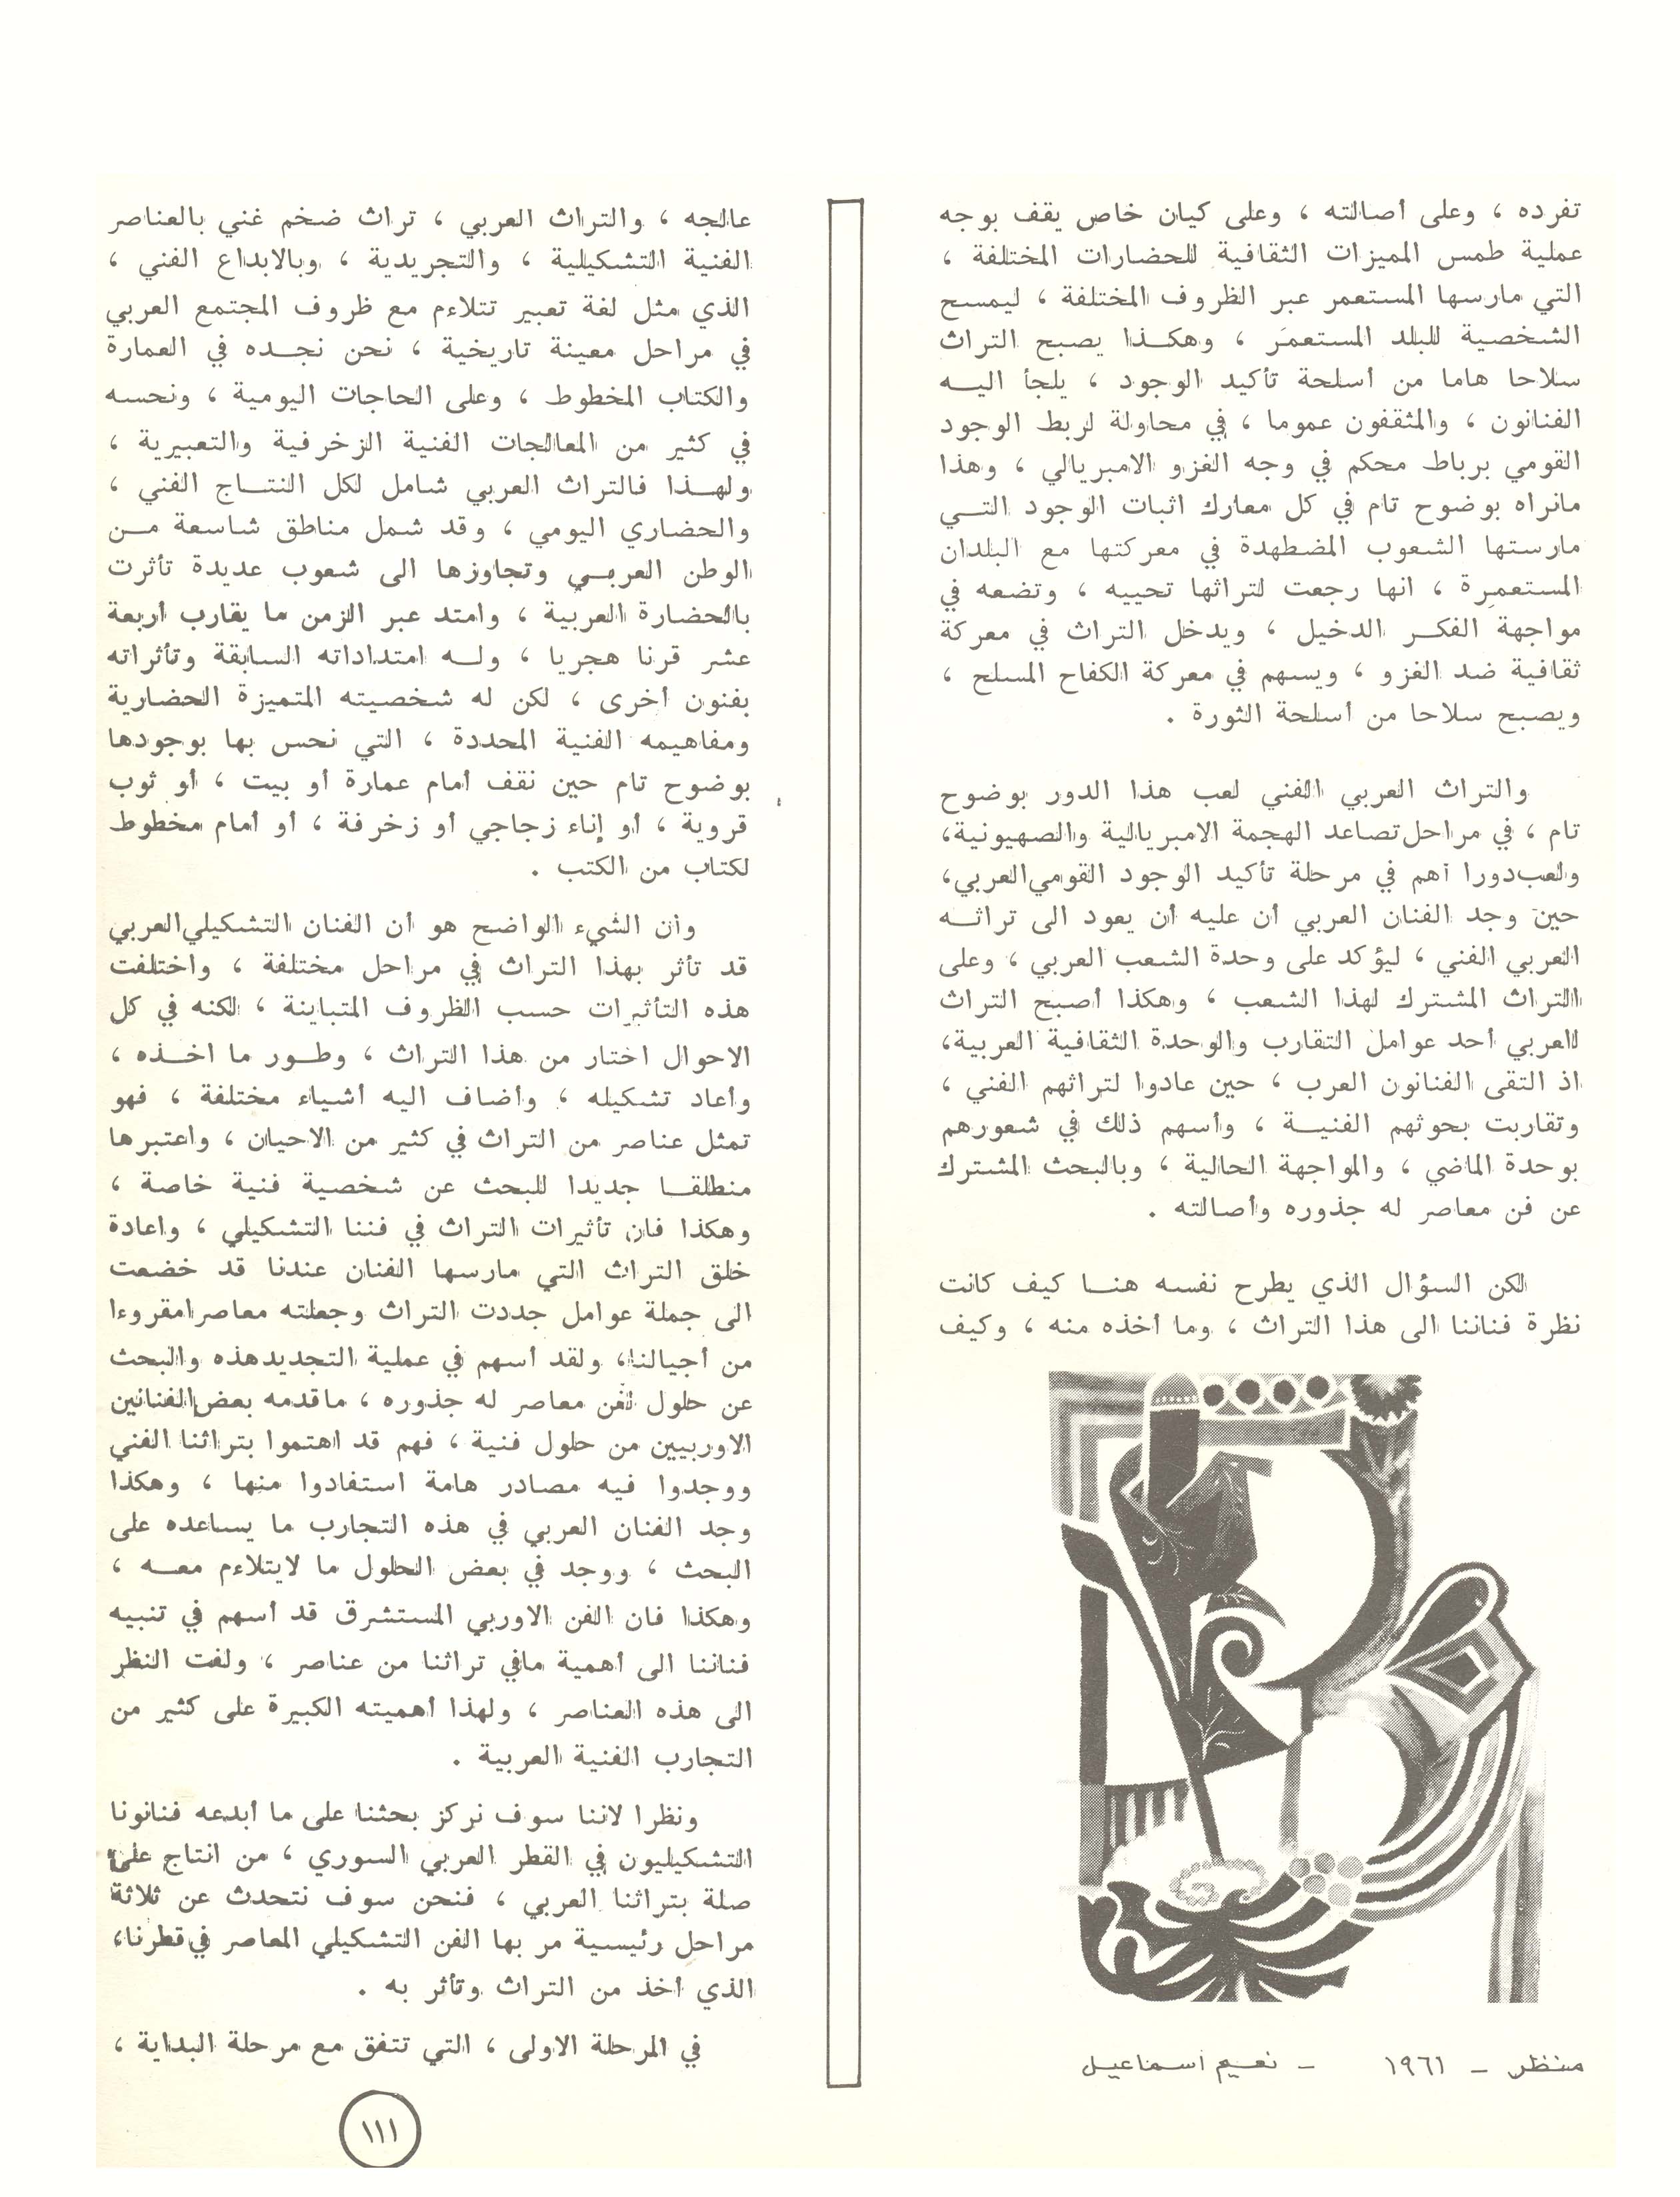 تفرده ، وعلى أصالته ، وعلى كيان خاص يقف بوجه
عملية طمس المميزات الثقافية للحضارات المختلفة ،
التي مارسها المستعمر عبر الظروف المختلفة ، ليمسح
الشخصية للبلد المستعمَر ، وهكـذا يصبح التراث
سلاحا هاما من أسلحة تأكيد الوجود ، يلجأ اليـه
الفنانون ، والمثقفون عموما ، في محاولة لربط الوجود
القومي برباط محكم في وجه الغزو الامبريالي ، وهذا
مانراه بوضوح تام في كل معارك اثبات الوجود التـي
مارستها الشعوب المضطهدة في معركتها مع البلدان
المستعمِرة ، انها رجعت لتراثها تحييه ، وتضعه في
مواجهة الفكـر الدخيل ، ويدخل التراث في معركة
ثقافية ضد الغزو ، ويسهم في معركة الكفاح المسلح ،
ويصبح سلاحا من أسلحة الثورة .
والتراث العربي الفني لعب هذا الدور بوضوح
تام ، في مراحل تصاعد الهجمة الامبريالية والصهيونية،
ولعب دورا أهم في مرحلة تأكيد الوجود القومي العربي،
حين وجد الفنان العربي أن عليه أن يعود الى تراثـه
العربي الفني ، ليؤكد على وحدة الشعب العربي ، وعلى
التراث المشترك لهذا الشعب ، وهكذا أصبح التراث
العربي أحد عوامل التقارب والوحدة الثقافية العربية،
اذ التقى الفنانون العرب ، حين عادوا لتراثهم الفني ،
وتقاربت بحوثهم الفنيـة ، وأسهم ذلك في شعورهم
بوحدة الماضي ، والمواجهة الحالية ، وبالبحث المشترك
عن فن معاصر له جذوره وأصالته .
لكن السؤال الذي يطرح نفسه هنـا كيف كانت
نظرة فناننا الى هذا التراث ، وما أخذه منه ، وكيف
منظر ـ ١٩٦١ ـ نعيم اسماعيل
عالجه ، والتراث العربي ، تراث ضخم غني بالعناصر
الفنية التشكيلية ، والتجريدية ، وبالابداع الفني ،
الذي مثل لغة تعبير تتلاءم مع ظروف المجتمع العربي
في مراحل معينة تاريخية ، نحن نجـده في العمارة
والكتاب المخطوط ، وعلى الحاجات اليومية ، ونحسه
في كثير من المعالجات الفنية الزخرفية والتعبيرية ،
ولهـذا فالتراث العربي شامل لكل النتـاج الفني ،
والحضاري اليومي ، وقد شمل مناطق شاسعة مـن
الوطن العربـي وتجاوزها الى شعوب عديدة تأثرت
بالحضارة العربية ، وامتد عبر الزمن ما يقارب أربعة
عشر قرنا هجريا ، ولـه امتداداته السابقة وتأثراته
بفنون أخرى ، لكن له شخصيته المتميزة الحضارية
ومفاهيمه الفنية المحددة ، التي نحس بها بوجودها
بوضوح تام حين نقف أمام عمارة أو بيت ، أو ثوب
قروية ، أو إناء زجاجي أو زخرفة ، أو أمام مخطوط
لكتاب من الكتب .
وأن الشيء الواضح هو أن الفنان التشكيلي العربي
قد تأثر بهذا التراث في مراحل مختلفة ، واختلفت
هذه التأثيرات حسب الظروف المتباينة ، لكنه في كل
الاحوال اختار من هذا التراث ، وطـور ما اخـذه ،
وأعاد تشكيله ، وأضاف اليه أشياء مختلفة ، فهو
تمثل عناصر من التراث في كثير من الاحيان ، واعتبرها
منطلقـا جديدا للبحث عن شخصية فنية خاصة ،
وهكذا فان تأثيرات التراث في فننا التشكيلي ، واعادة
خلق التراث التي مارسها الفنان عندنا قد خضعت
الى جملة عوامل جددت التراث وجعلته معاصرا مقروءا
من أجيالنا، ولقد أسهم في عملية التجديد هذه والبحث
عن حلول لفن معاصر له جذوره ، ماقدمه بعض الفنانين
الاوربيين من حلول فنية ، فهم قد اهتموا بتراثنا الفني
ووجدوا فيه مصادر هامة استفادوا منها ، وهكذا
وجد الفنان العربي في هذه التجارب ما يساعده على
البحث ، ووجد في بعض الحلول ما لايتلاءم معـه ،
وهكذا فان الفن الاوربي المستشرق قد أسهم في تنبيه
فناننا الى أهمية مافي تراثنا من عناصر ، ولفت النظر
الى هذه العناصر ، ولهذا أهميته الكبيرة على كثير من
التجارب الفنية العربية .
ونظرا لاننا سوف نركز بحثنا على ما أبدعه فنانونا
التشكيليون في القطر العربي السوري ، من انتاج على
صلة بتراثنا العربي ، فنحن سوف نتحدث عن ثلاثة
مراحل رئيسية مر بها الفن التشكيلي المعاصر في قطرنا،
الذي أخذ من التراث وتأثر به .
في المرحلة الاولى ، التي تتفق مع مرحلة البداية ،
١١١